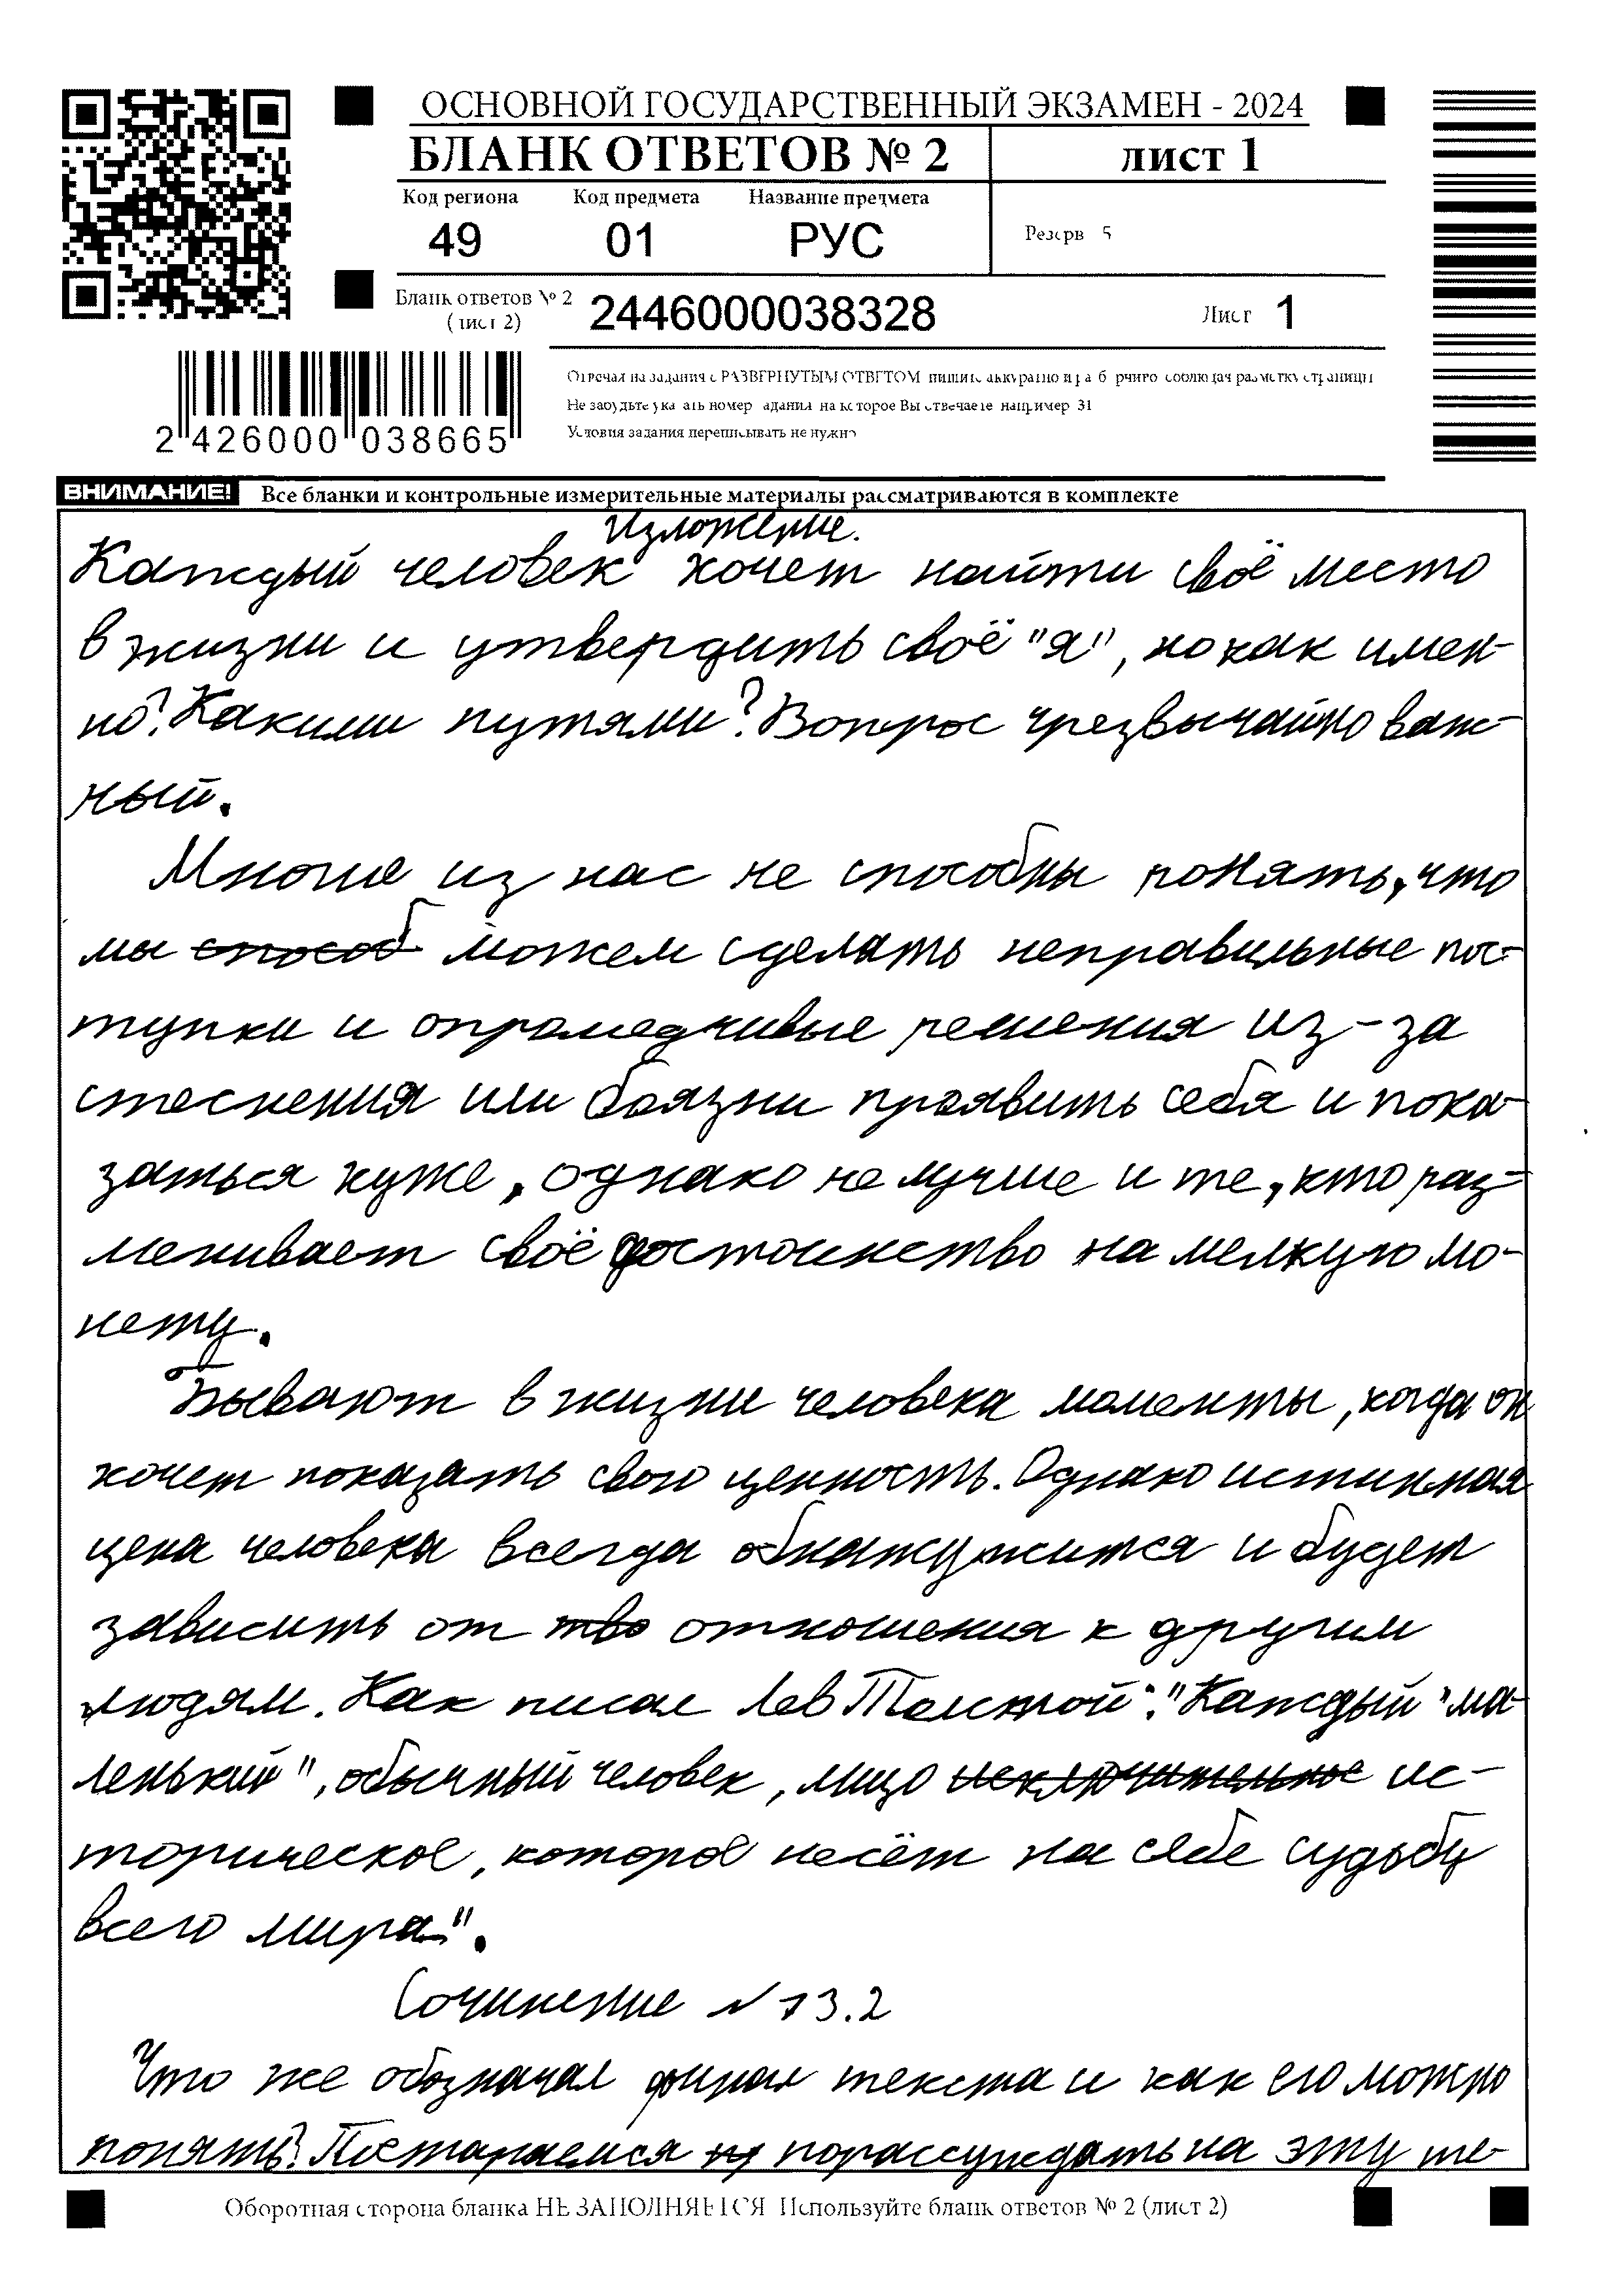 ОСНОВНОЙ ГОСУДАРСТВЕННЫЙ ЭКЗАМЕН - 2024
БЛАНК ОТВЕТОВ № 2
лист 1
Код региона Код предмета Название предмета
49 01 РУС
Резерв 5
Бланк ответов № 2 (лист 2) 2446000038328
Лист 1
2 426000 038665
Отвечая на задания с РАЗВЕРНУТЫМ ОТВЕТОМ пишите аккуратно и разборчиво соблюдая разметку страницы
Не забудьте указать номер задания на которое Вы отвечаете например 31
Условия задания переписывать не нужно
ВНИМАНИЕ! Все бланки и контрольные измерительные материалы рассматриваются в комплекте
Изложение.
Каждый человек хочет найти своё место
в жизни и утвердить своё "я", но как имен-
но? Какими путями? Вопрос чрезвычайно важ-
ный.
Многие из нас не способны понять, что
мы способ можем сделать неправильные пос-
тупки и опрометчивые решения из-за
стеснения или боязни проявить себя и пока-
заться хуже, однако не лучше и те, кто раз-
менивает своё достоинство на мелкую мо-
нету.
Бывают в жизни человека моменты, когда он
хочет показать свою ценность. Однако истинная
цена человека всегда обнаружится и будет
зависить от тво отношения к другим
людям. Как писал Лев Толстой: "Каждый "ма-
ленький", обычный человек, лицо исключительное ис-
торическое, которое несёт на себе судьбу
всего мира".
Сочинение №13.2
Что же обозначал финал текста и как его можно
понять? Постараемся ну порассуждать на эту те-
Оборотная сторона бланка НЕ ЗАПОЛНЯЕТСЯ Используйте бланк ответов № 2 (лист 2)